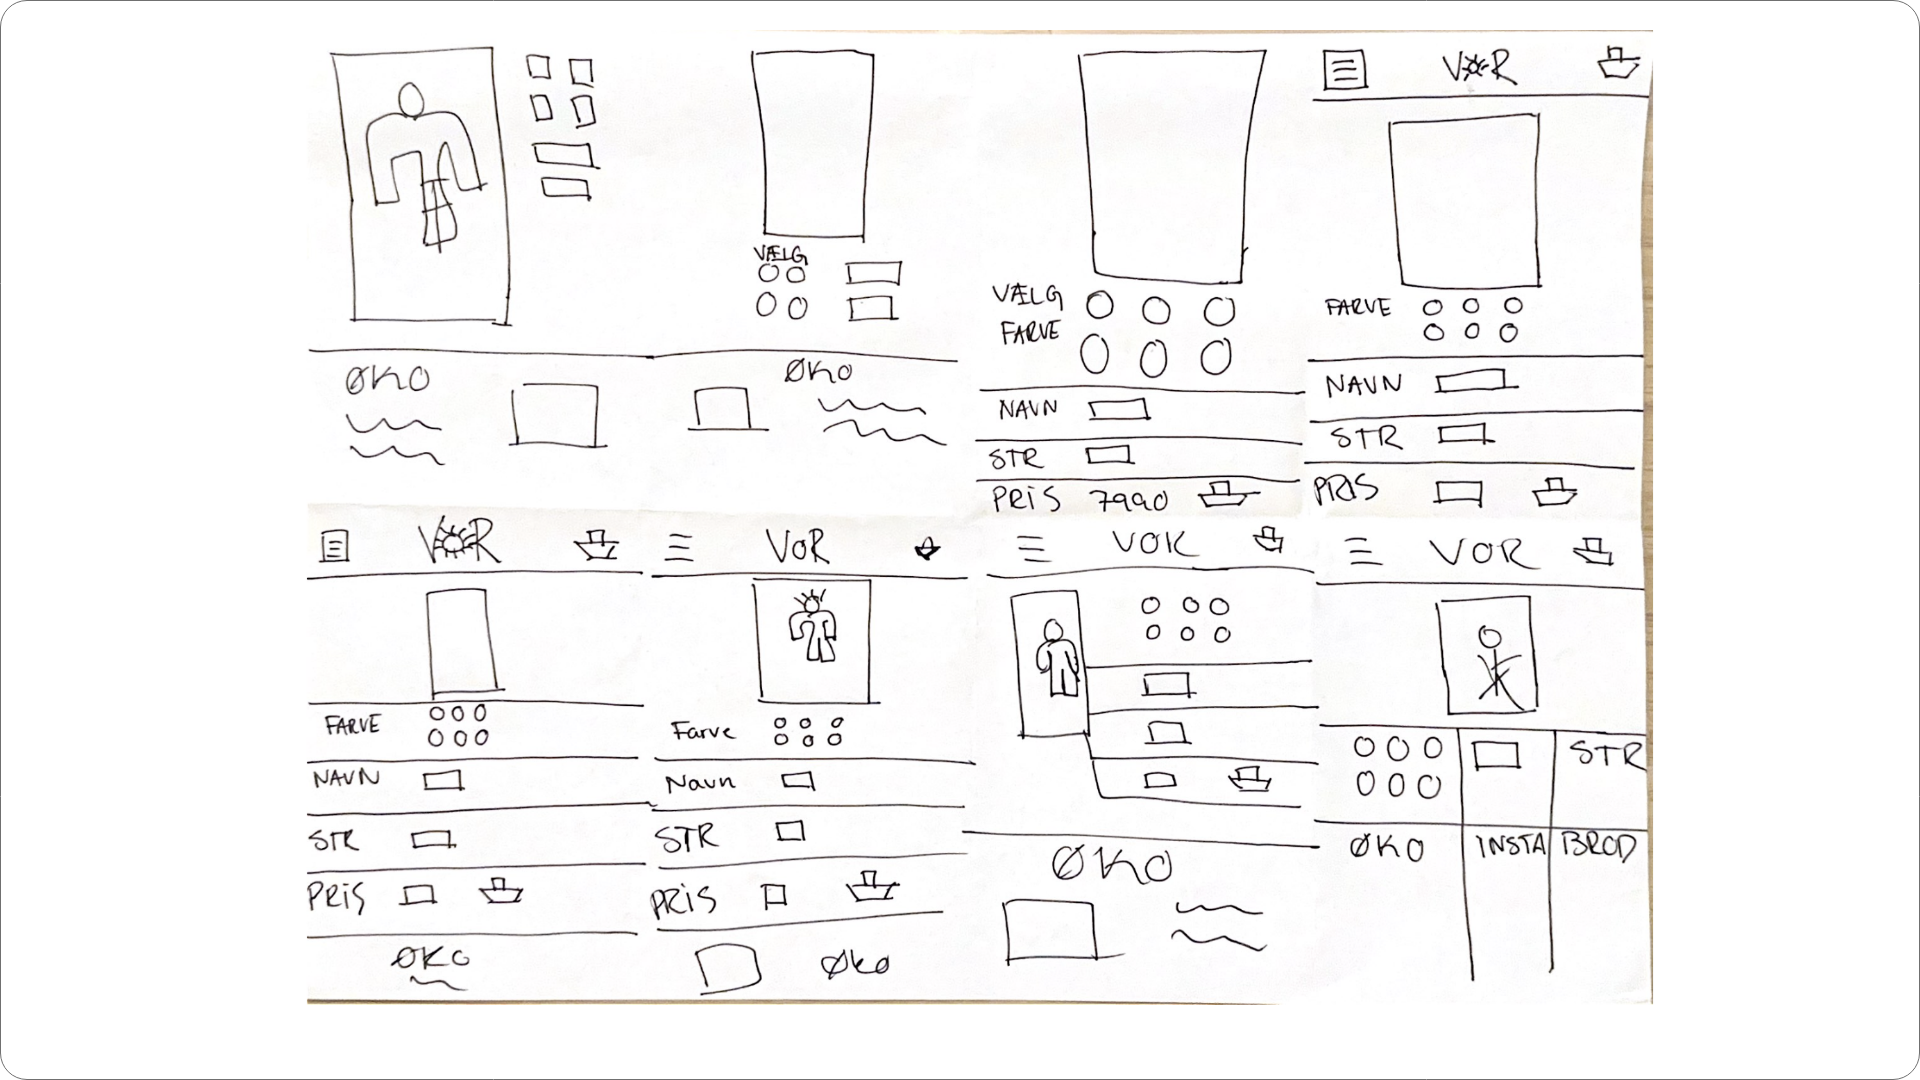 ØKO
VÆLG
ØKO
VÆLG
FARVE
NAVN
STR
PRiS 7990
VOR
FARVE
NAVN
STR
PRIS
VOR
FARVE
NAVN
STR
PRiS
ØKO
VOR
Farve
Navn
STR
PRiS
Øko
VOR
ØKO
VOR
STR
ØKO INSTA BROD